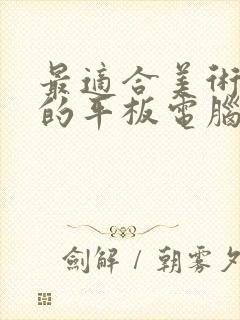 最適合美術
的平板電腦
劍解 / 朝雾夕